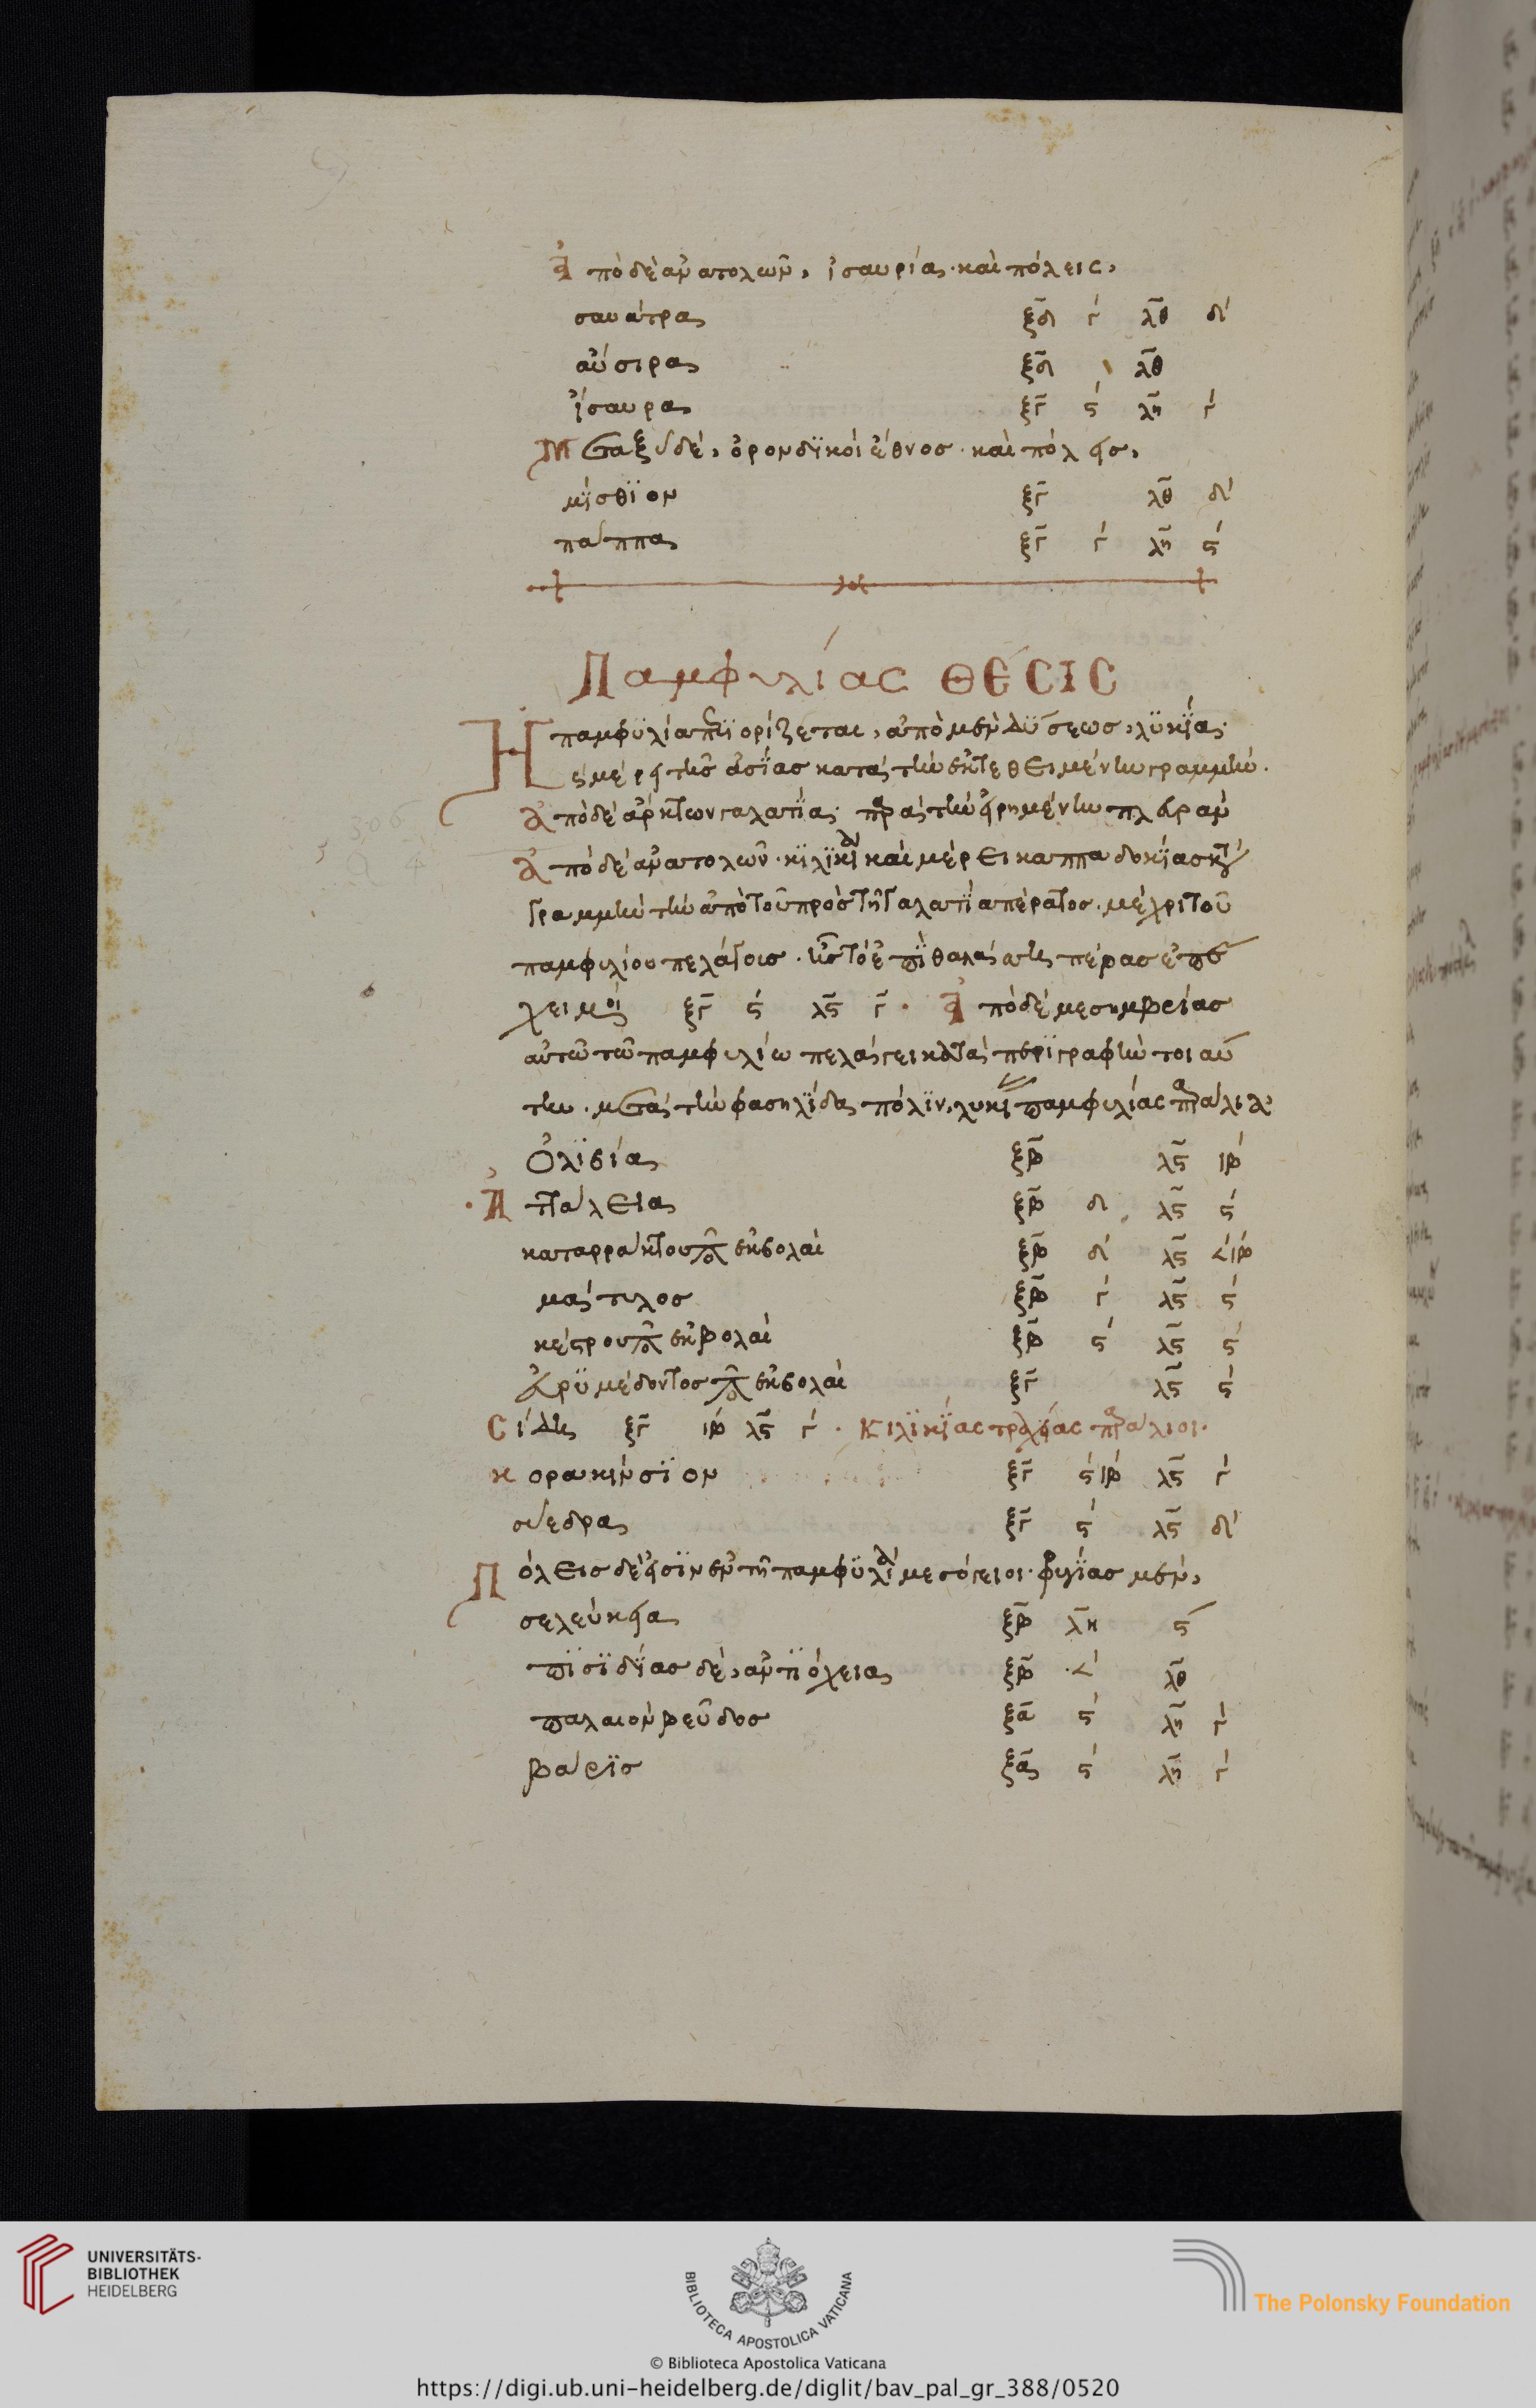 Ἀπὸ δὲ ἀνατολῶν, ἰσαυρίας· καὶ πόλεις,
σαυάτρα ξδ γ λθ δ
αὔσιρα ξδ λθ
ἴσαυρα ξγ ς λη γ
Μεταξὺ δὲ, ὀρονδϊκοὶ ἔθνος· καὶ πόλεις,
μίσθϊον ξγ λθ δ
πάππα ξγ γ λη ς
Παμφυλίας ΘΈCΙC
Ἡ παμφϋλία περιορίζεται, ἀπὸ μὲν δΰσεως, λϋκίᾳ·
μέρει τῆς ἀσΐας κατὰ τὴν ἐκτεθειμένην γραμμήν·
Ἀπὸ δὲ ἄρκτων γαλατίᾳ· παρὰ τὴν εἰρημένην πλευράν
Ἀπὸ δὲ ἀνατολῶν· κϊλϊκίᾳ καὶ μέρει καππαδοκΐας
γραμμὴν τὴν ἀπὸ τοῦ πρὸς τῇ Γαλατίᾳ πέρατος· μέχρι τοῦ
παμφυλίου πελάγους· πέρας
ξγ ς λς γ· Ἀπὸ δὲ μεσημβρίας
αὐτῷ τῷ παμφυλίῳ πελάγει κατὰ περϊγραφὴν τοιαύ
την· μετὰ τὴν φασηλίδα πόλϊν, παμφυλίας παράλια
Ὀλϊβία ξβ λς ιβ
Ἀττάλεια ξβ δ λς ς
καταρράκτου ποταμοῦ ἐκβολαὶ ξβ δ λς ιβ
μάγυλος ξβ γ λς ς
κέστρου ποταμοῦ ἐκβολαὶ ξβ ς λς ς
Εὐρϋμέδοντος ποταμοῦ ἐκβολαὶ ξγ λς ς
Cίδη ξγ ιβ λς γ· Κιλϊκΐας τραχείας παράλιοι·
κορακήνσϊον ξγ ςιβ λς γ
σύεδρα ξγ ς λς δ
Πόλεις δέ εἰσϊν ἐν τῇ παμφϋλίᾳ μεσόγειοι· φρυγΐας μὲν,
σελεύκεια ξβ λη ς
πϊσϊδΐας δὲ, ἀντϊόχεια ξβ λθ
παλαιὸν βεῦδος ξα ς λη γ
βάρϊς ξα ς λη γ
UNIVERSITÄTS-
BIBLIOTHEK
HEIDELBERG
BIBLIOTECA APOSTOLICA VATICANA
The Polonsky Foundation
© Biblioteca Apostolica Vaticana
https://digi.ub.uni-heidelberg.de/diglit/bav_pal_gr_388/0520